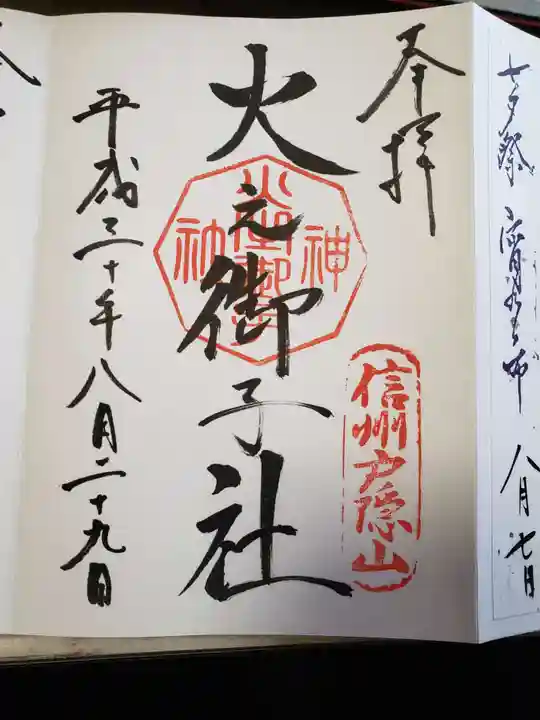 七夕祭
八月七日
奉拝
信州戸隠山
火之御子社
平成三十年八月二十九日